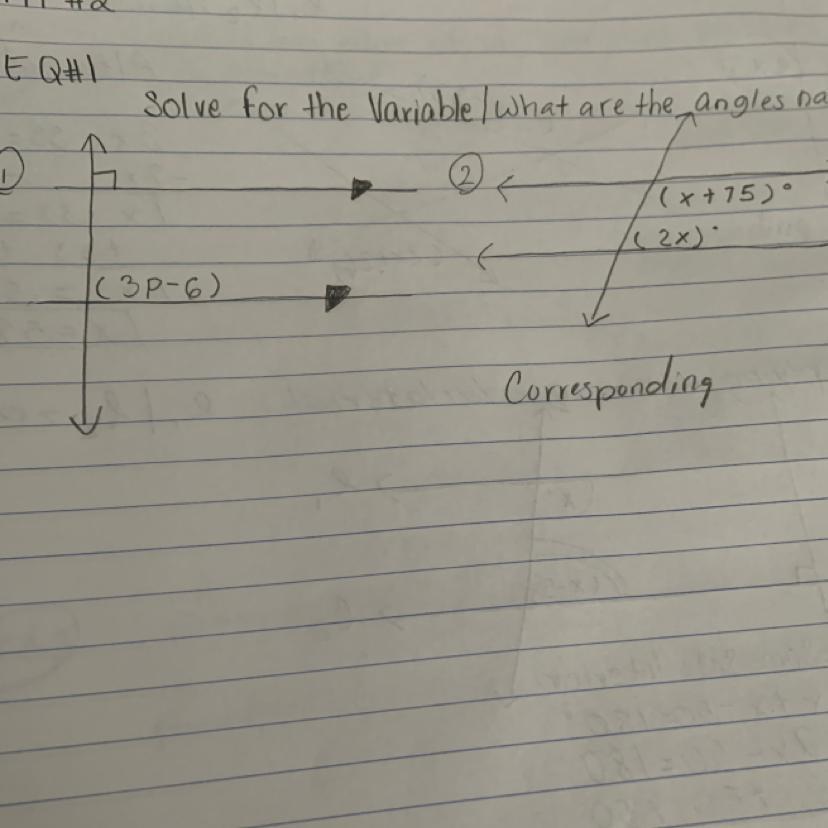 E Q#1
Solve for the Variable/What are the angles
① ②
(x+75)°
(2x)°
(3P-6)
Corresponding